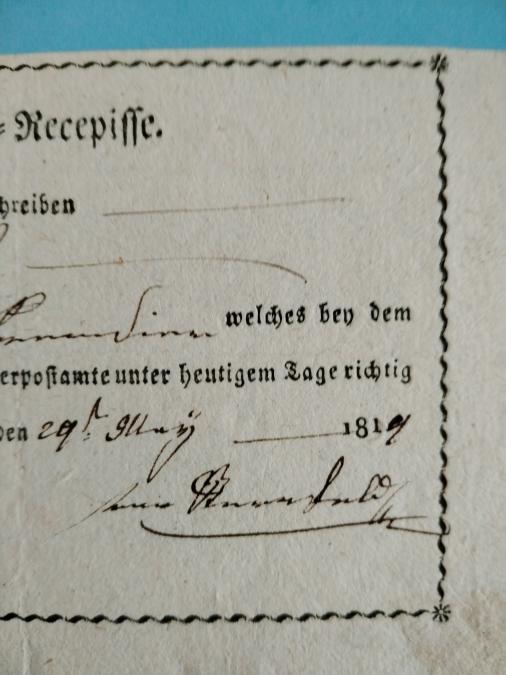 = Recepisse.
hreiben
welches bey dem
erpostamte unter heutigem Tage richtig
den 29t May 1819